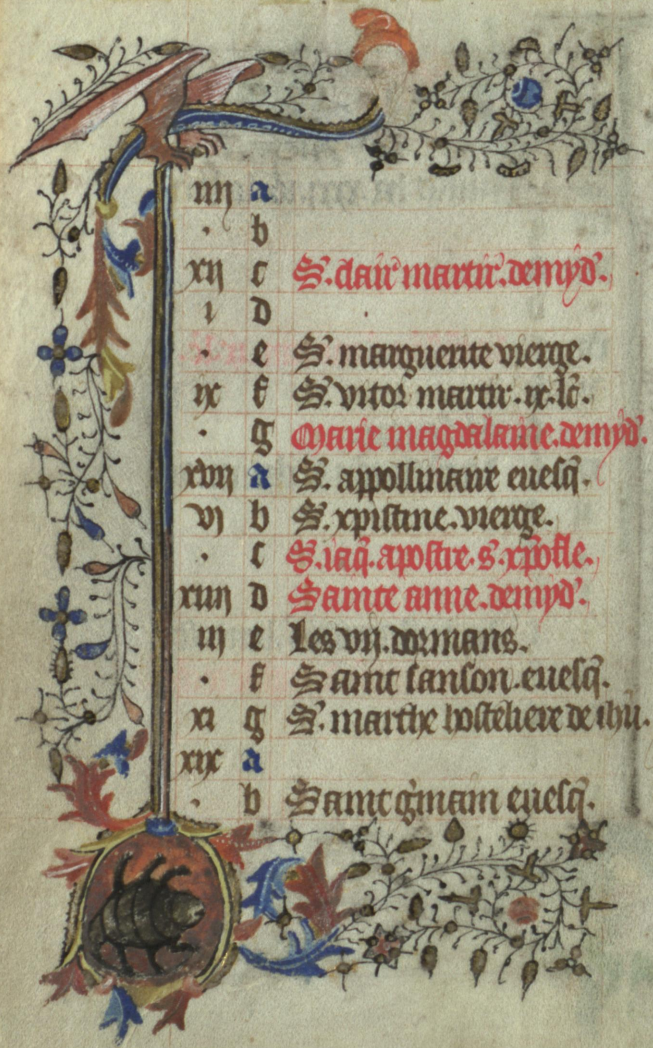 iiii a
. b
xii c S. clair martir. demyd'.
i d
. e S. marguerite vierge.
ix f S. vitor martir. ix. lc.
. g Marie magdalaine. demyd'.
xvii a S. appollinaire euesq.
vi b S. xpistine. vierge.
. c S. iaq. apostre. s. xpofle.
xiiii d Saincte anne. demyd'.
iii e Les vii. dormans.
. f Saint sanson. euesq.
xi g S. marthe hosteliere de ihu.
xix a
. b Saint gmain euesq.